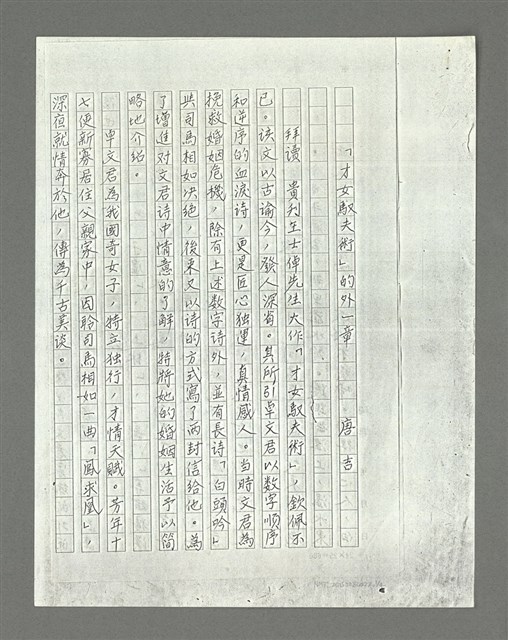 「才女馭夫術」的外一章　唐吉
拜讀　貴刊王士偉先生大作「才女馭夫術」，欽佩不
已。该文以古谕今，發人深省。其所引卓文君以数字順序
和逆序的血淚詩，更是匠心独運，真情感人。当時文君為
挽救婚姻危機，除有上述数字詩外，並有長詩「白頭吟」
與司馬相如决絕，後来又以诗的方式寫了两封信给他。為
了增進对文君诗中情意的了解，特將她的婚姻生活予以简
略地介绍。
卓文君為我國奇女子，特立独行，才情天赋。芳年十
七便新寡居住父親家中，因聆司馬相如一曲「鳳求凰」，
深夜就情奔於他，傳為千古美谈。